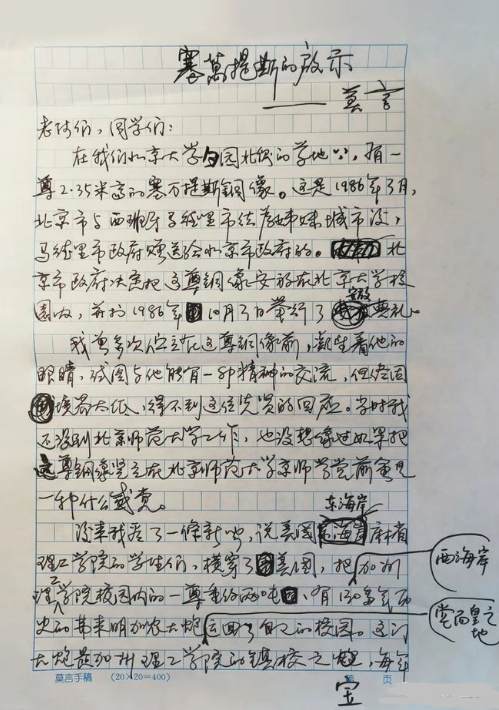 塞万提斯的启示
—— 莫言
老师们，同学们：
在我们北京大学校园北侧的草地上，有一
尊2.35米高的塞万提斯铜像。这是1986年3月，
北京市与西班牙马德里市结为姊妹城市后，
马德里市政府赠送给北京市政府的。北
京市政府决定把这尊铜像安放在北京大学校
园内，并于1986年10月3日举行了安放典礼。
我曾多次伫立在这尊铜像前，凝望着他的
眼睛，试图与他能有一种精神的交流，但
境界太低，得不到这位先贤的回应。当时我
还没到北京师范大学工作，也没想像过如果把
这尊铜像竖立在北京师范大学京师学堂前面是
一种什么感觉。
后来我看了一条新闻，说美国东海岸麻省
理工学院的学生们，横穿了美国，把加州
理工学院校园内的一尊重约两吨、有130多年历
史的弗莱明加农大炮运回了自己的校园。这门
大炮是加州理工学院的镇校之宝，每年
西海岸
堂而皇之地
莫言手稿 (20×20=400) 第 页